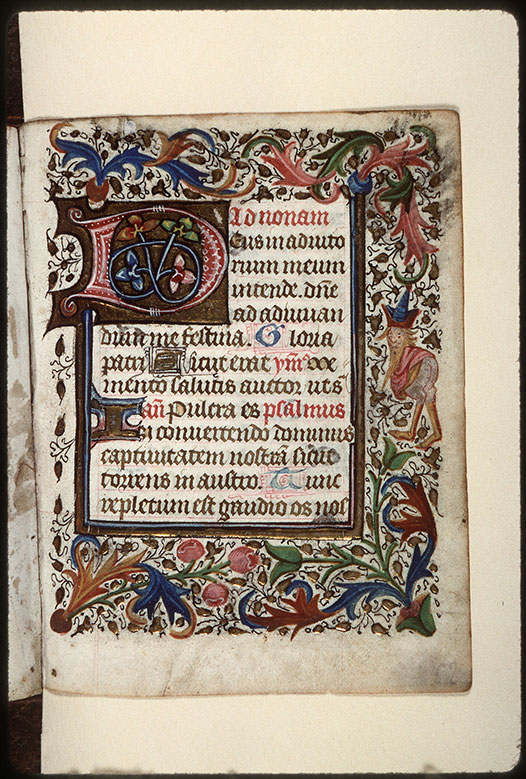 Ad nonam
Deus in adiuto
rium meum
intende. dn̄e
ad adiuuan
dum me festina. Gloria
patri Sicut erat ym̄s Me
mento salutis auctor ut s̄
an̄ Pulcra es psalmus
In conuertendo dominus
captiuitatem nostrā sicut
torrens in austro. Tunc
repletum est gaudio os nos